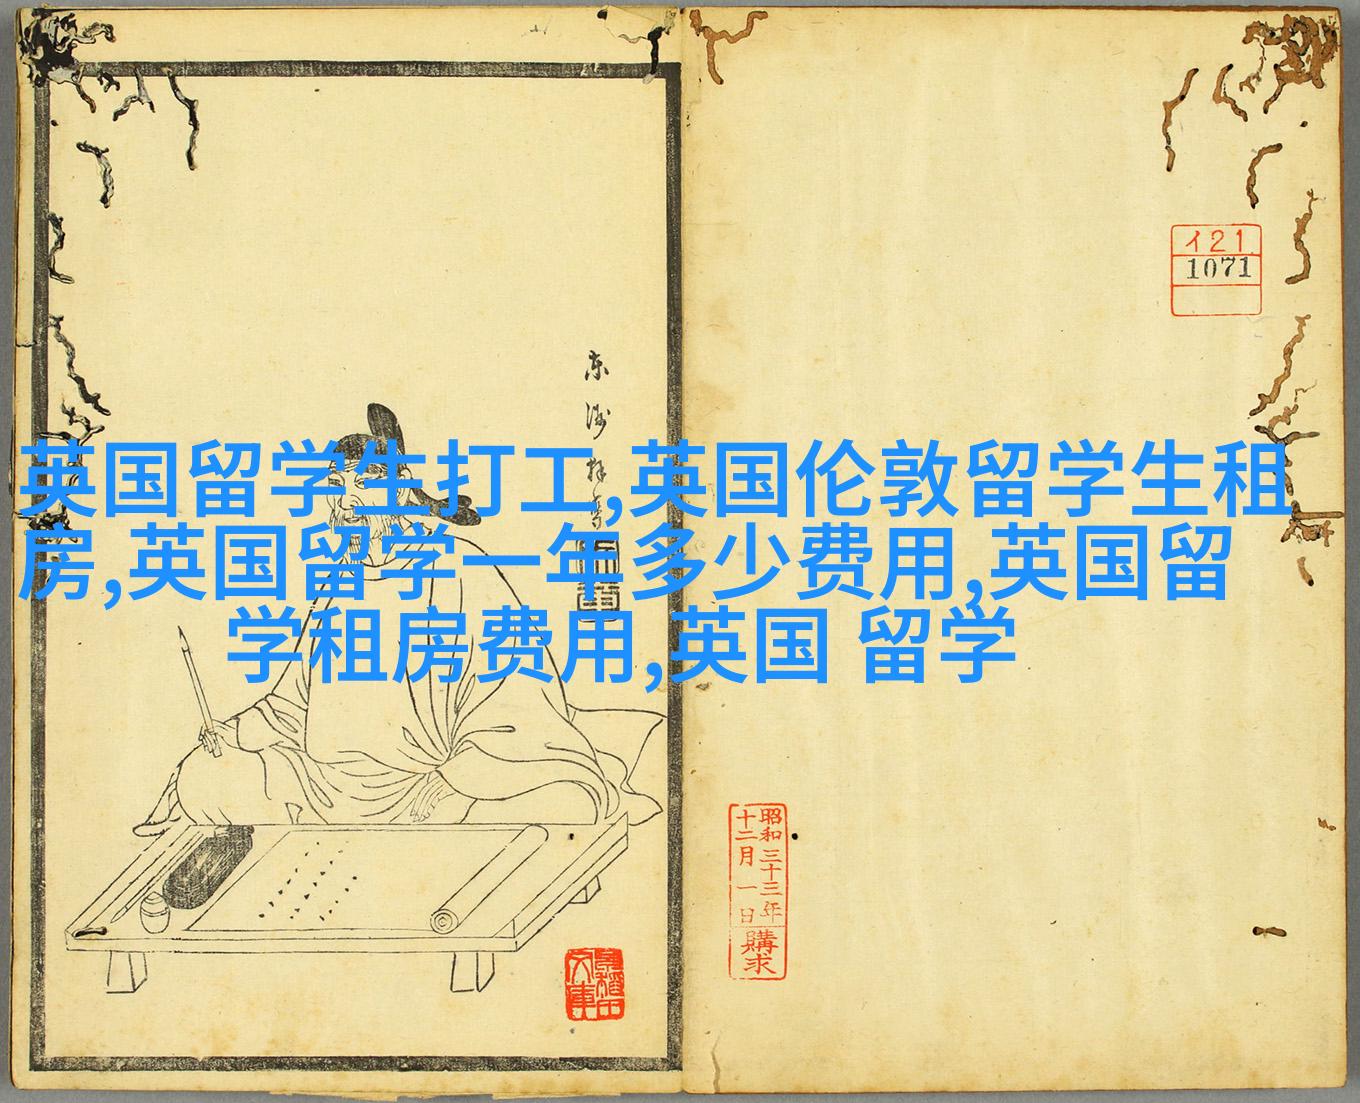 英国留学生打工,英国伦敦留学生租
房,英国留学一年多少费用,英国留
学租房费用,英国 留学
イ21
1071
昭和三十三年
十二月一日
購求